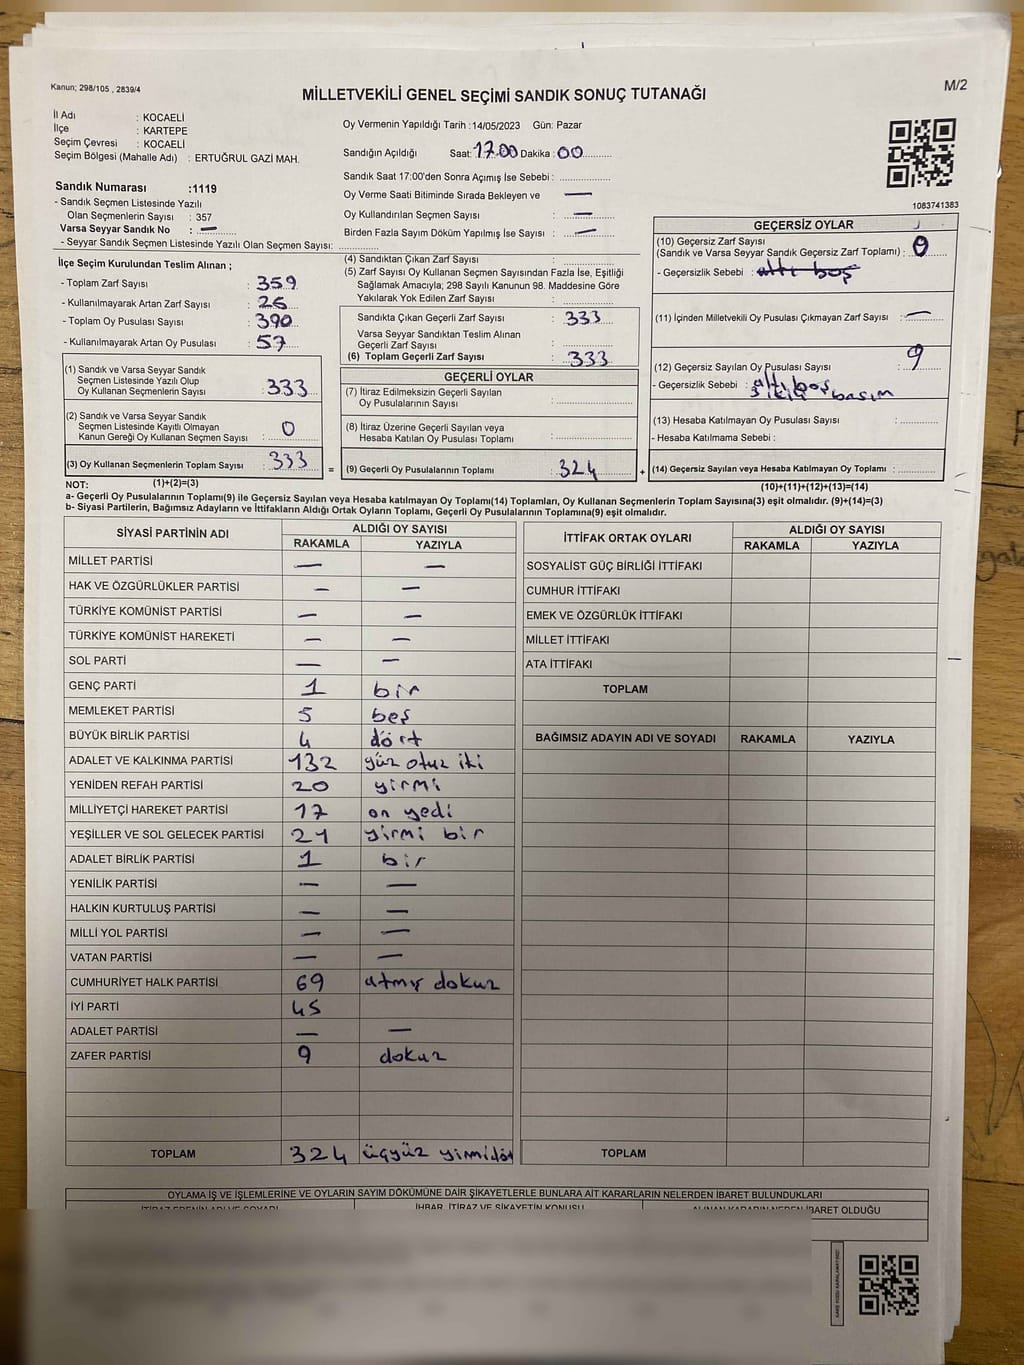 Kanun; 298/105 , 2839/4
M/2
MİLLETVEKİLİ GENEL SEÇİMİ SANDIK SONUÇ TUTANAĞI
İl Adı : KOCAELİ
İlçe : KARTEPE
Seçim Çevresi : KOCAELİ
Seçim Bölgesi (Mahalle Adı) : ERTUĞRUL GAZİ MAH.
Oy Vermenin Yapıldığı Tarih :14/05/2023 Gün: Pazar
Sandığın Açıldığı Saat: 17.00 Dakika : 00
Sandık Saat 17:00'den Sonra Açımış İse Sebebi :
Oy Verme Saati Bitiminde Sırada Bekleyen ve —
Oy Kullandırılan Seçmen Sayısı : —
Birden Fazla Sayım Döküm Yapılmış İse Sayısı : —
1083741383
Sandık Numarası :1119
- Sandık Seçmen Listesinde Yazılı
Olan Seçmenlerin Sayısı : 357
Varsa Seyyar Sandık No : —
- Seyyar Sandık Seçmen Listesinde Yazılı Olan Seçmen Sayısı:
İlçe Seçim Kurulundan Teslim Alınan ;
- Toplam Zarf Sayısı : 359
- Kullanılmayarak Artan Zarf Sayısı : 26
- Toplam Oy Pusulası Sayısı : 390
- Kullanılmayarak Artan Oy Pusulası : 57
(1) Sandık ve Varsa Seyyar Sandık
Seçmen Listesinde Yazılı Olup
Oy Kullanan Seçmenlerin Sayısı : 333
(2) Sandık ve Varsa Seyyar Sandık
Seçmen Listesinde Kayıtlı Olmayan
Kanun Gereği Oy Kullanan Seçmen Sayısı : 0
(3) Oy Kullanan Seçmenlerin Toplam Sayısı : 333 =
(4) Sandıktan Çıkan Zarf Sayısı :
(5) Zarf Sayısı Oy Kullanan Seçmen Sayısından Fazla İse, Eşitliği
Sağlamak Amacıyla; 298 Sayılı Kanunun 98. Maddesine Göre
Yakılarak Yok Edilen Zarf Sayısı :
Sandıkta Çıkan Geçerli Zarf Sayısı : 333
Varsa Seyyar Sandıktan Teslim Alınan
Geçerli Zarf Sayısı :
(6) Toplam Geçerli Zarf Sayısı : 333
GEÇERLİ OYLAR
(7) İtiraz Edilmeksizin Geçerli Sayılan
Oy Pusulalarının Sayısı :
(8) İtiraz Üzerine Geçerli Sayılan veya
Hesaba Katılan Oy Pusulası Toplamı :
(9) Geçerli Oy Pusulalarının Toplamı : 324 +
GEÇERSİZ OYLAR
(10) Geçersiz Zarf Sayısı
(Sandık ve Varsa Seyyar Sandık Geçersiz Zarf Toplamı) : 0
- Geçersizlik Sebebi : altı boş
(11) İçinden Milletvekili Oy Pusulası Çıkmayan Zarf Sayısı : —
(12) Geçersiz Sayılan Oy Pusulası Sayısı : 9
- Geçersizlik Sebebi : altı boş
basım
(13) Hesaba Katılmayan Oy Pusulası Sayısı :
- Hesaba Katılmama Sebebi :
(14) Geçersiz Sayılan veya Hesaba Katılmayan Oy Toplamı :
NOT: (1)+(2)=(3)
(10)+(11)+(12)+(13)=(14)
a- Geçerli Oy Pusulalarının Toplamı(9) ile Geçersiz Sayılan veya Hesaba katılmayan Oy Toplamı(14) Toplamları, Oy Kullanan Seçmenlerin Toplam Sayısına(3) eşit olmalıdır. (9)+(14)=(3)
b- Siyasi Partilerin, Bağımsız Adayların ve İttifakların Aldığı Ortak Oyların Toplamı, Geçerli Oy Pusulalarının Toplamına(9) eşit olmalıdır.
SİYASİ PARTİNİN ADI ALDIĞI OY SAYISI
RAKAMLA YAZIYLA
MİLLET PARTİSİ — —
HAK VE ÖZGÜRLÜKLER PARTİSİ — —
TÜRKİYE KOMÜNİST PARTİSİ — —
TÜRKİYE KOMÜNİST HAREKETİ — —
SOL PARTİ — —
GENÇ PARTİ 1 bir
MEMLEKET PARTİSİ 5 beş
BÜYÜK BİRLİK PARTİSİ 4 dört
ADALET VE KALKINMA PARTİSİ 132 yüz otuz iki
YENİDEN REFAH PARTİSİ 20 yirmi
MİLLİYETÇİ HAREKET PARTİSİ 17 on yedi
YEŞİLLER VE SOL GELECEK PARTİSİ 21 yirmi bir
ADALET BİRLİK PARTİSİ 1 bir
YENİLİK PARTİSİ — —
HALKIN KURTULUŞ PARTİSİ — —
MİLLİ YOL PARTİSİ — —
VATAN PARTİSİ — —
CUMHURİYET HALK PARTİSİ 69 atmış dokuz
İYİ PARTİ 45
ADALET PARTİSİ — —
ZAFER PARTİSİ 9 dokuz
TOPLAM 324 üçyüz yirmidört
İTTİFAK ORTAK OYLARI ALDIĞI OY SAYISI
RAKAMLA YAZIYLA
SOSYALİST GÜÇ BİRLİĞİ İTTİFAKI
CUMHUR İTTİFAKI
EMEK VE ÖZGÜRLÜK İTTİFAKI
MİLLET İTTİFAKI
ATA İTTİFAKI
TOPLAM
BAĞIMSIZ ADAYIN ADI VE SOYADI RAKAMLA YAZIYLA
TOPLAM
OYLAMA İŞ VE İŞLEMLERİNE VE OYLARIN SAYIM DÖKÜMÜNE DAİR ŞİKAYETLERLE BUNLARA AİT KARARLARIN NELERDEN İBARET BULUNDUKLARI
İTİRAZ EDENİN ADI VE SOYADI İHBAR, İTİRAZ VE ŞİKAYETİN KONUSU ALINAN KARARIN NEDEN İBARET OLDUĞU